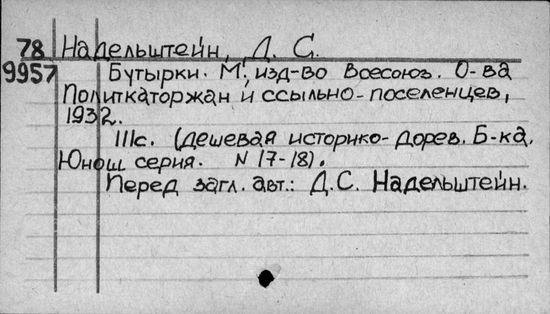 78 Надельштейн, Д. С.
9957 Бутырки. М., изд-во Всесоюз. О-ва
Политкаторжан и ссыльно-поселенцев,
1932.
111с. (дешевая историко-дорев. Б-ка.
Юнош серия. N 17-18).
Перед загл. авт.: Д.С. Надельштейн.